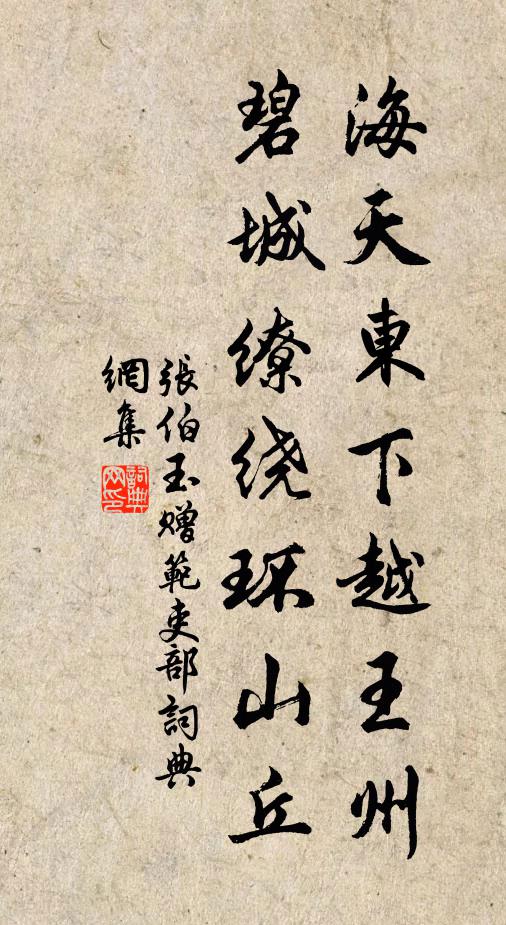 海天東下越王州
碧城繚绕环山丘
張伯玉贈範吏部詞典
網集
詞典
网印